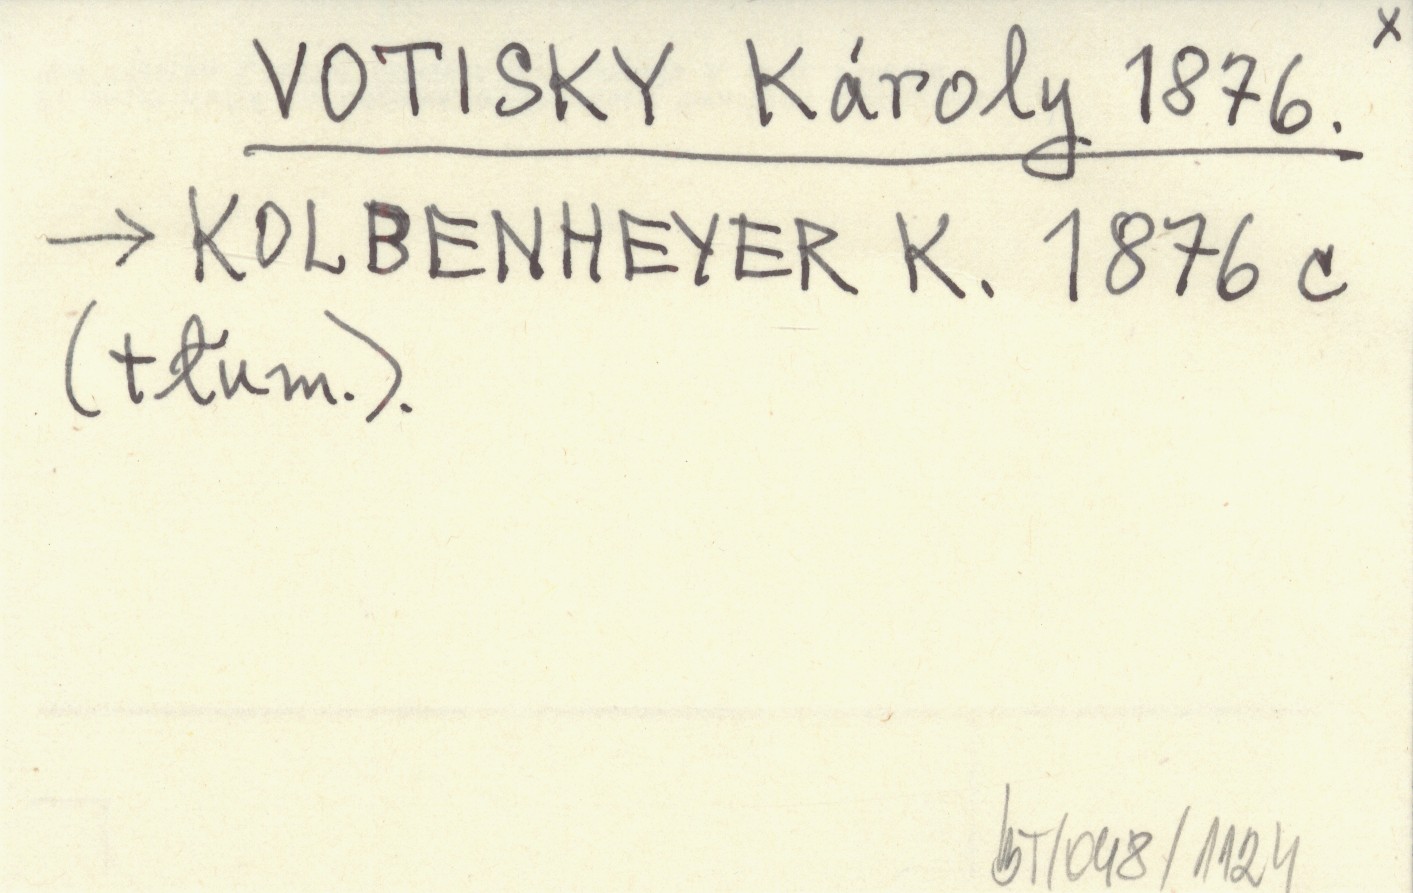 x
VOTISKY Károly 1876.
→ KOLBENHEYER K. 1876 c
(tłum.).
bT/048/1124